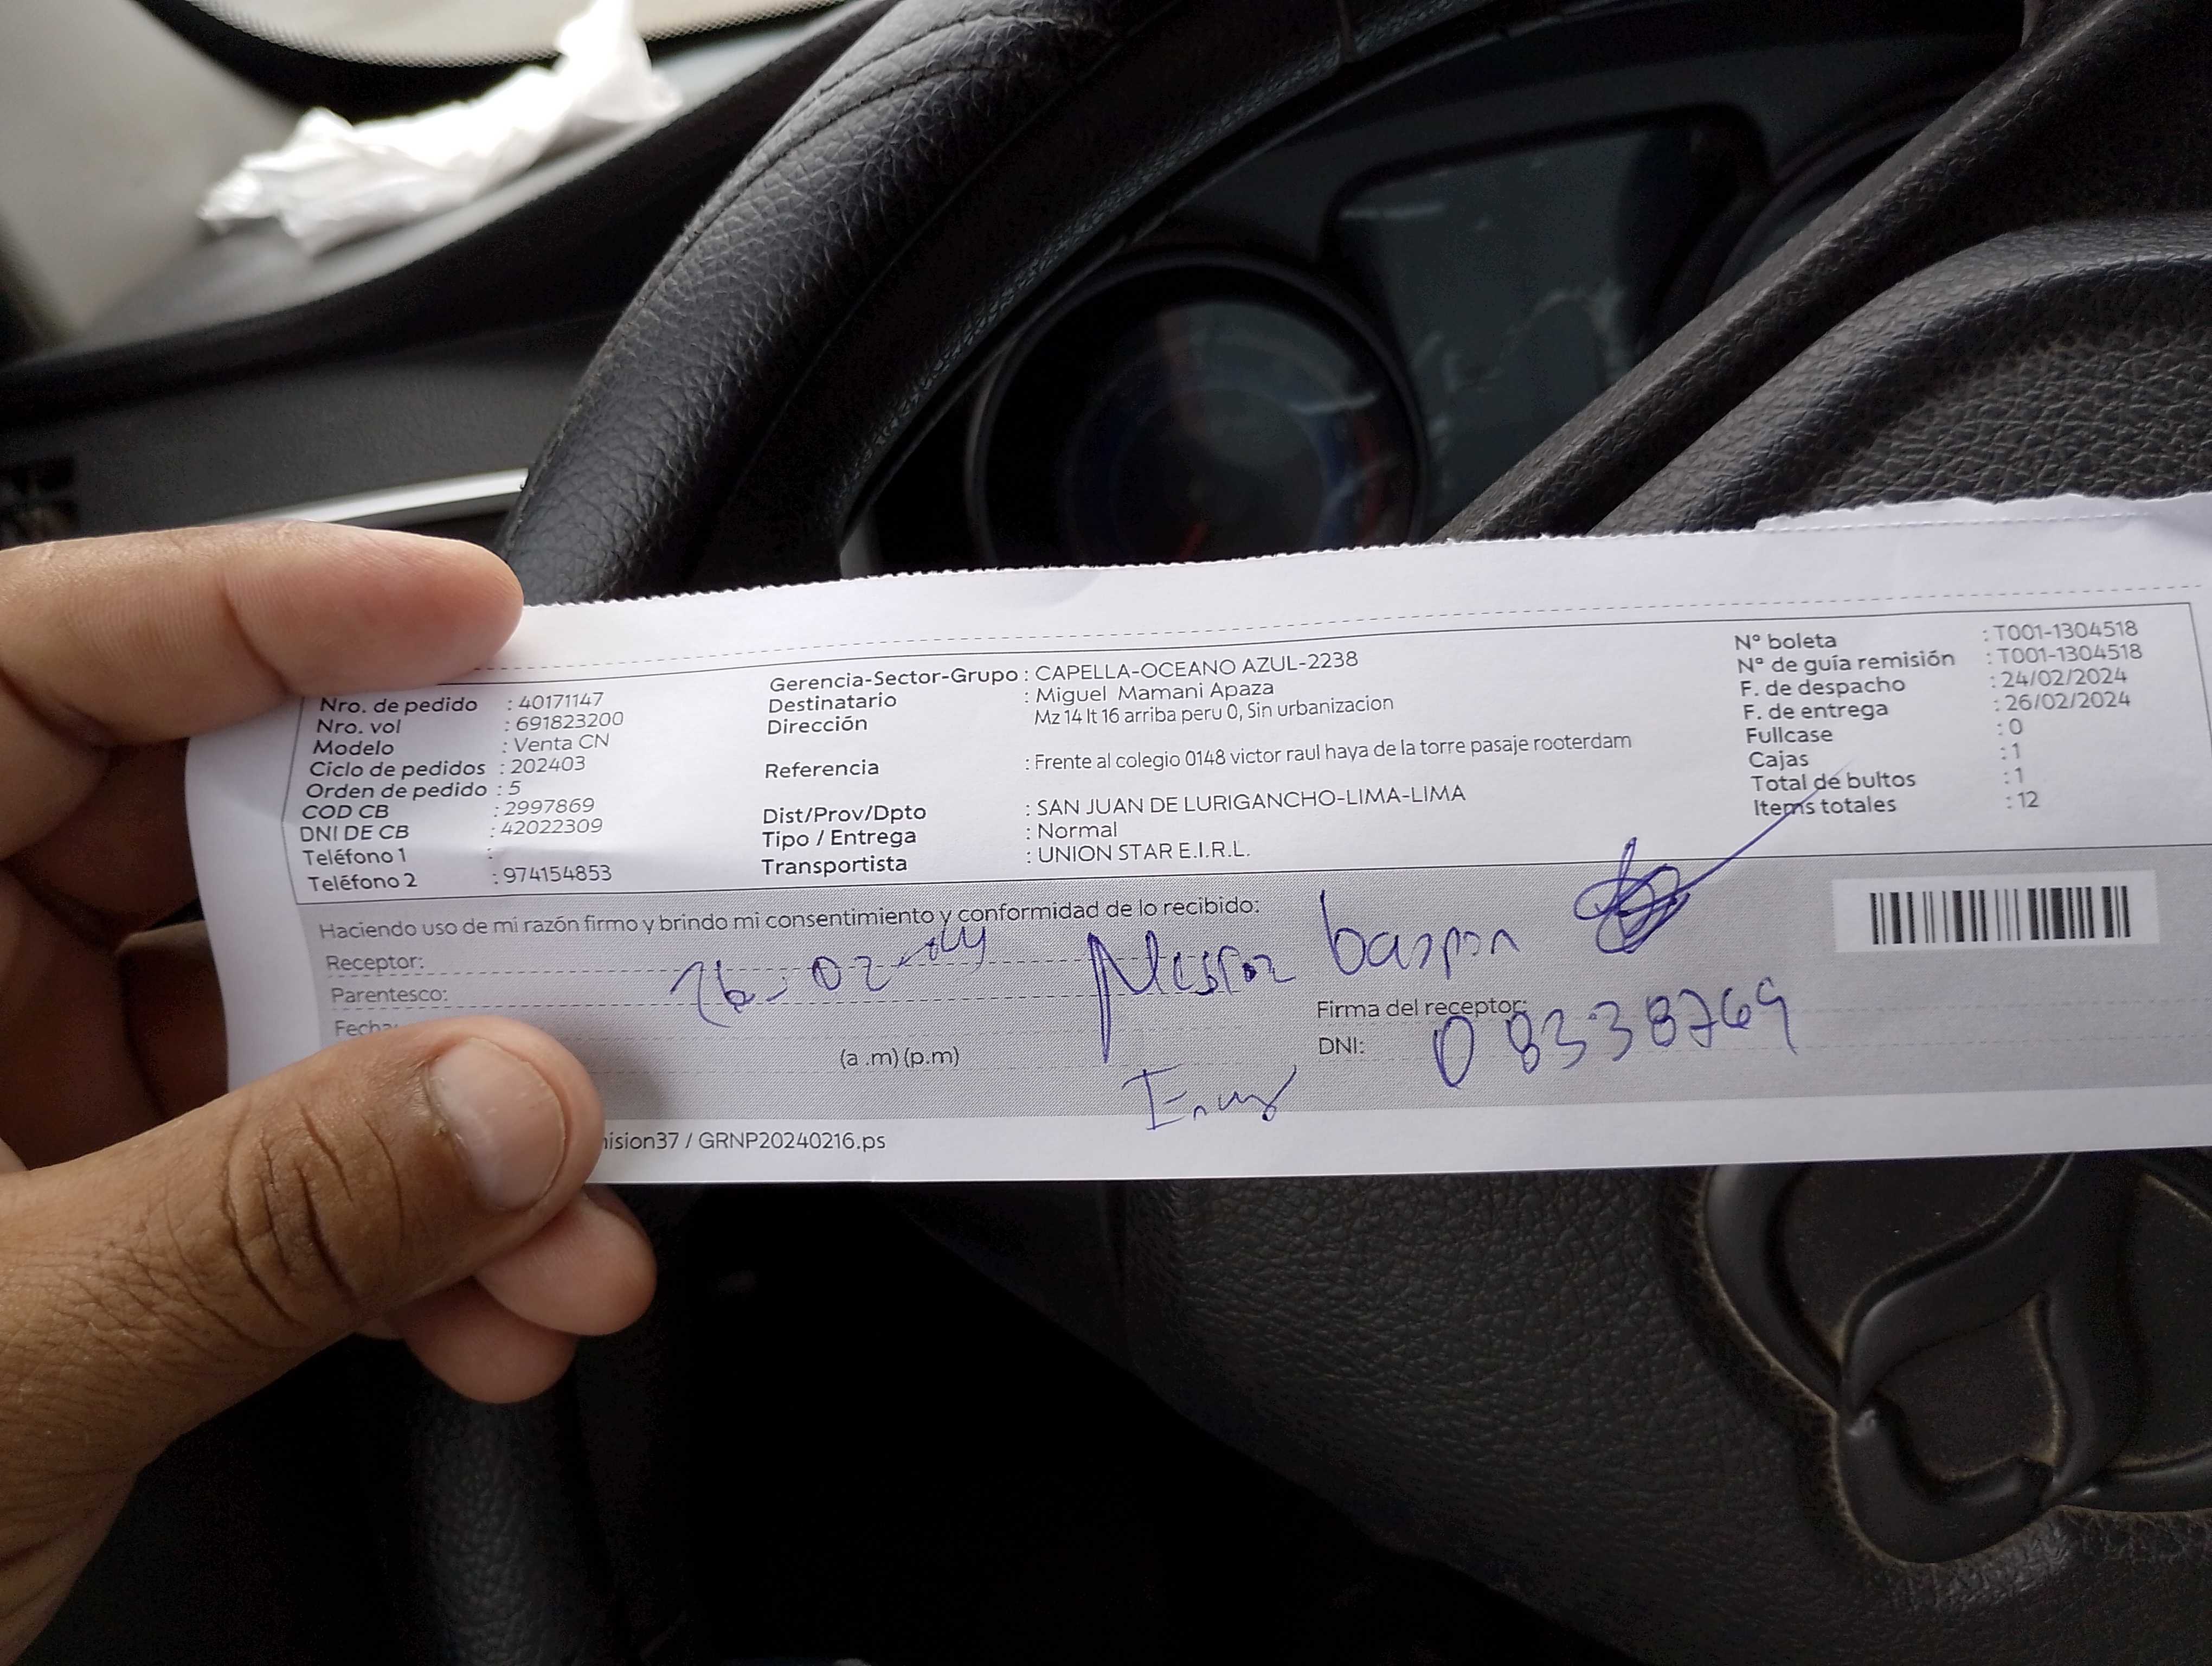 Nro. de pedido : 40171147
Nro. vol : 691823200
Modelo : Venta CN
Ciclo de pedidos : 202403
Orden de pedido : 5
COD CB : 2997869
DNI DE CB : 42022309
Teléfono 1 :
Teléfono 2 : 974154853
Gerencia-Sector-Grupo : CAPELLA-OCEANO AZUL-2238
Destinatario : Miguel Mamani Apaza
Dirección Mz 14 lt 16 arriba peru 0, Sin urbanizacion
Referencia : Frente al colegio 0148 victor raul haya de la torre pasaje rooterdam
Dist/Prov/Dpto : SAN JUAN DE LURIGANCHO-LIMA-LIMA
Tipo / Entrega : Normal
Transportista : UNION STAR E.I.R.L.
N° boleta : T001-1304518
N° de guía remisión : T001-1304518
F. de despacho : 24/02/2024
F. de entrega : 26/02/2024
Fullcase : 0
Cajas : 1
Total de bultos : 1
Items totales : 12
Haciendo uso de mi razón firmo y brindo mi consentimiento y conformidad de lo recibido:
Receptor:
Parentesco:
Fecha:
(a .m) (p.m)
Firma del receptor:
DNI: 08338769
ision37 / GRNP20240216.ps